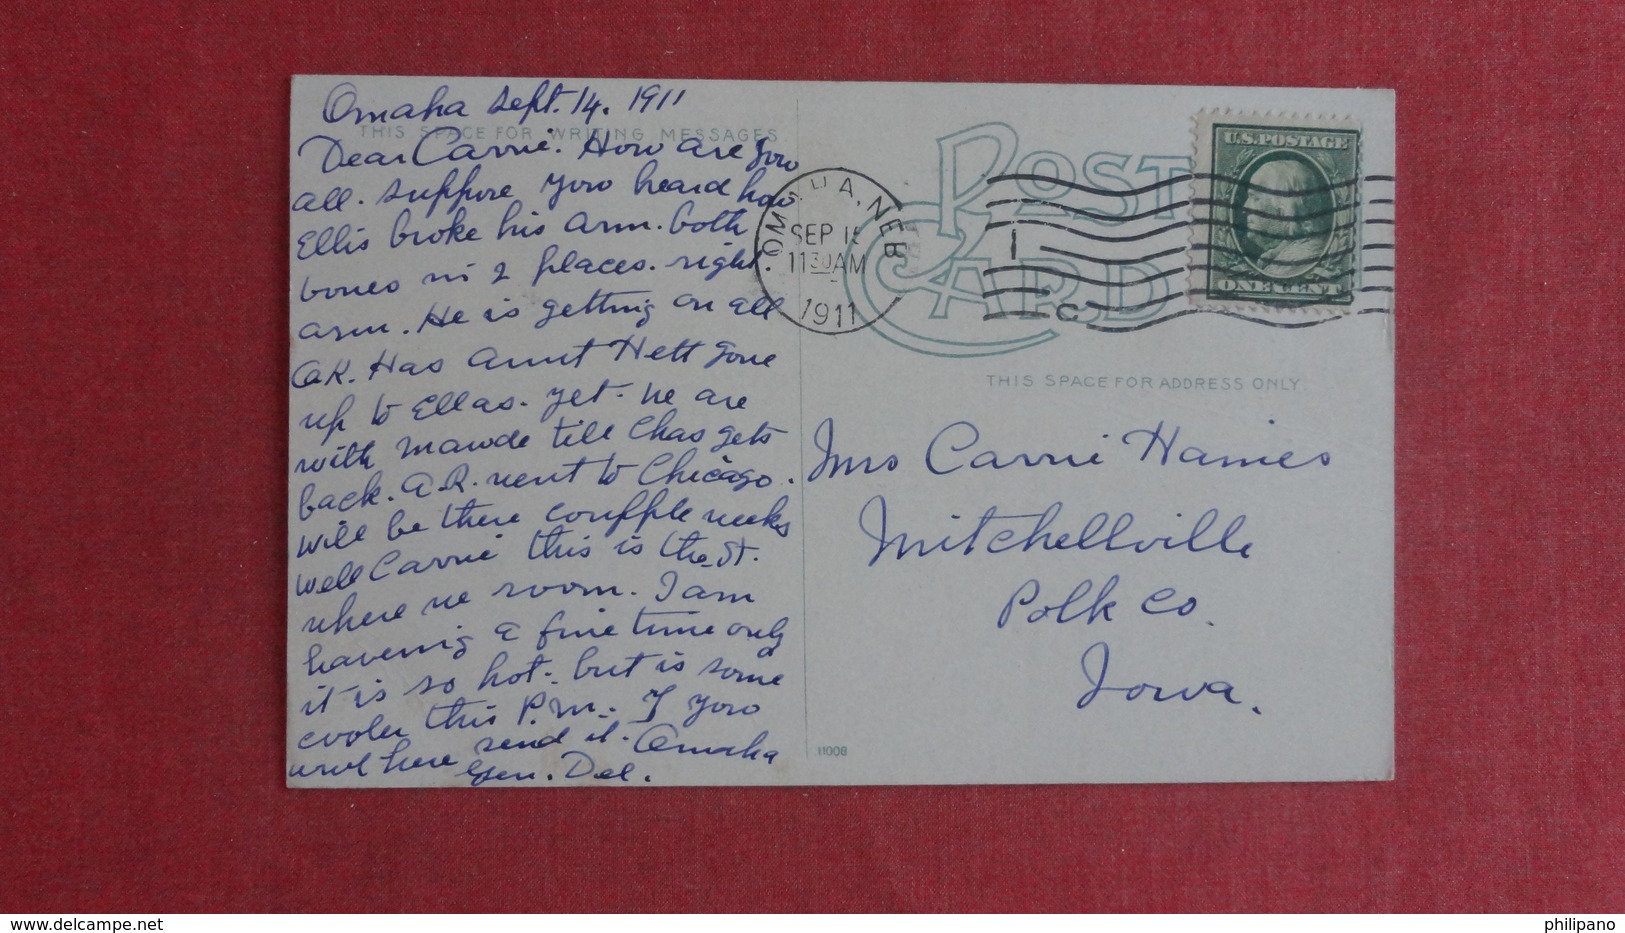 Omaha Sept. 14. 1911
THIS SPACE FOR WRITING MESSAGES
Dear Carrie. How are you
all. suppose you heard how
Ellis broke his arm. both
bones in 2 places. right.
arm. He is getting on all
O.K. Has Aunt Hett gone
up to Ellas. yet. we are
with Mawde till Chas gets
back. A.R. went to Chicago.
will be there coupple weeks
well Carrie this is the St.
where we room. I am
haveing a fine time only
it is so hot. but is some
cooler this P.M. If you
send it. Omaha
Gen. Del.
POST CARD
OMAHA, NEB
SEP 15
1130AM
1911
U.S.POSTAGE
ONE CENT
THIS SPACE FOR ADDRESS ONLY.
Mrs Carrie Haines
Mitchellville
Polk Co.
Iowa.
11008
www.delcampe.net
philipano